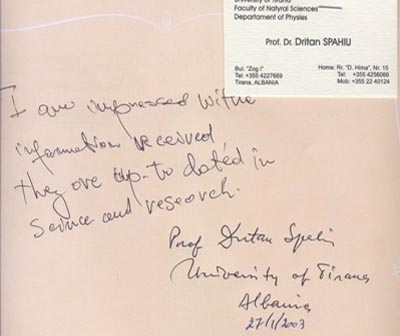 University of Tirana
Faculty of Natyral Sciences
Departament of Physies
Prof. Dr. Dritan SPAHIU
Bul. "Zog I"
Tel: +355 4227669
Tirana, ALBANIA
Home: Rr. "D. Hima", Nr. 15
Tel: +355 4256066
Mob: +355 22 40124
I am impressed withe
information received,
they are up-to dated in
Science and research.
Prof Dritan Spahiu
University of Tirana
Albania
27/1/2003